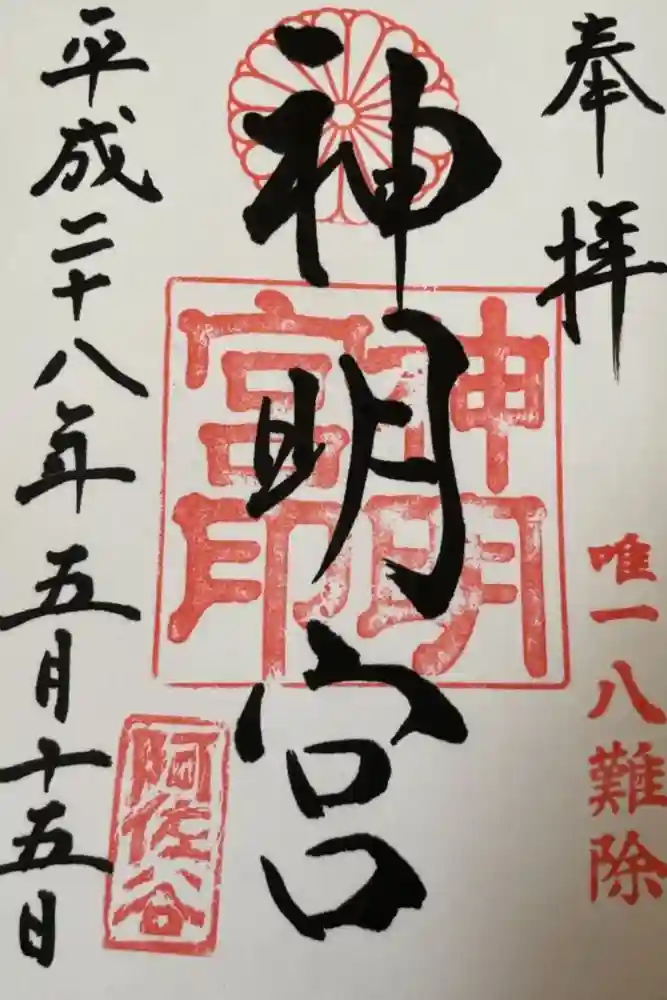 奉拝
唯一八難除
神明宮
神明宮印
平成二十八年五月十五日
阿佐谷